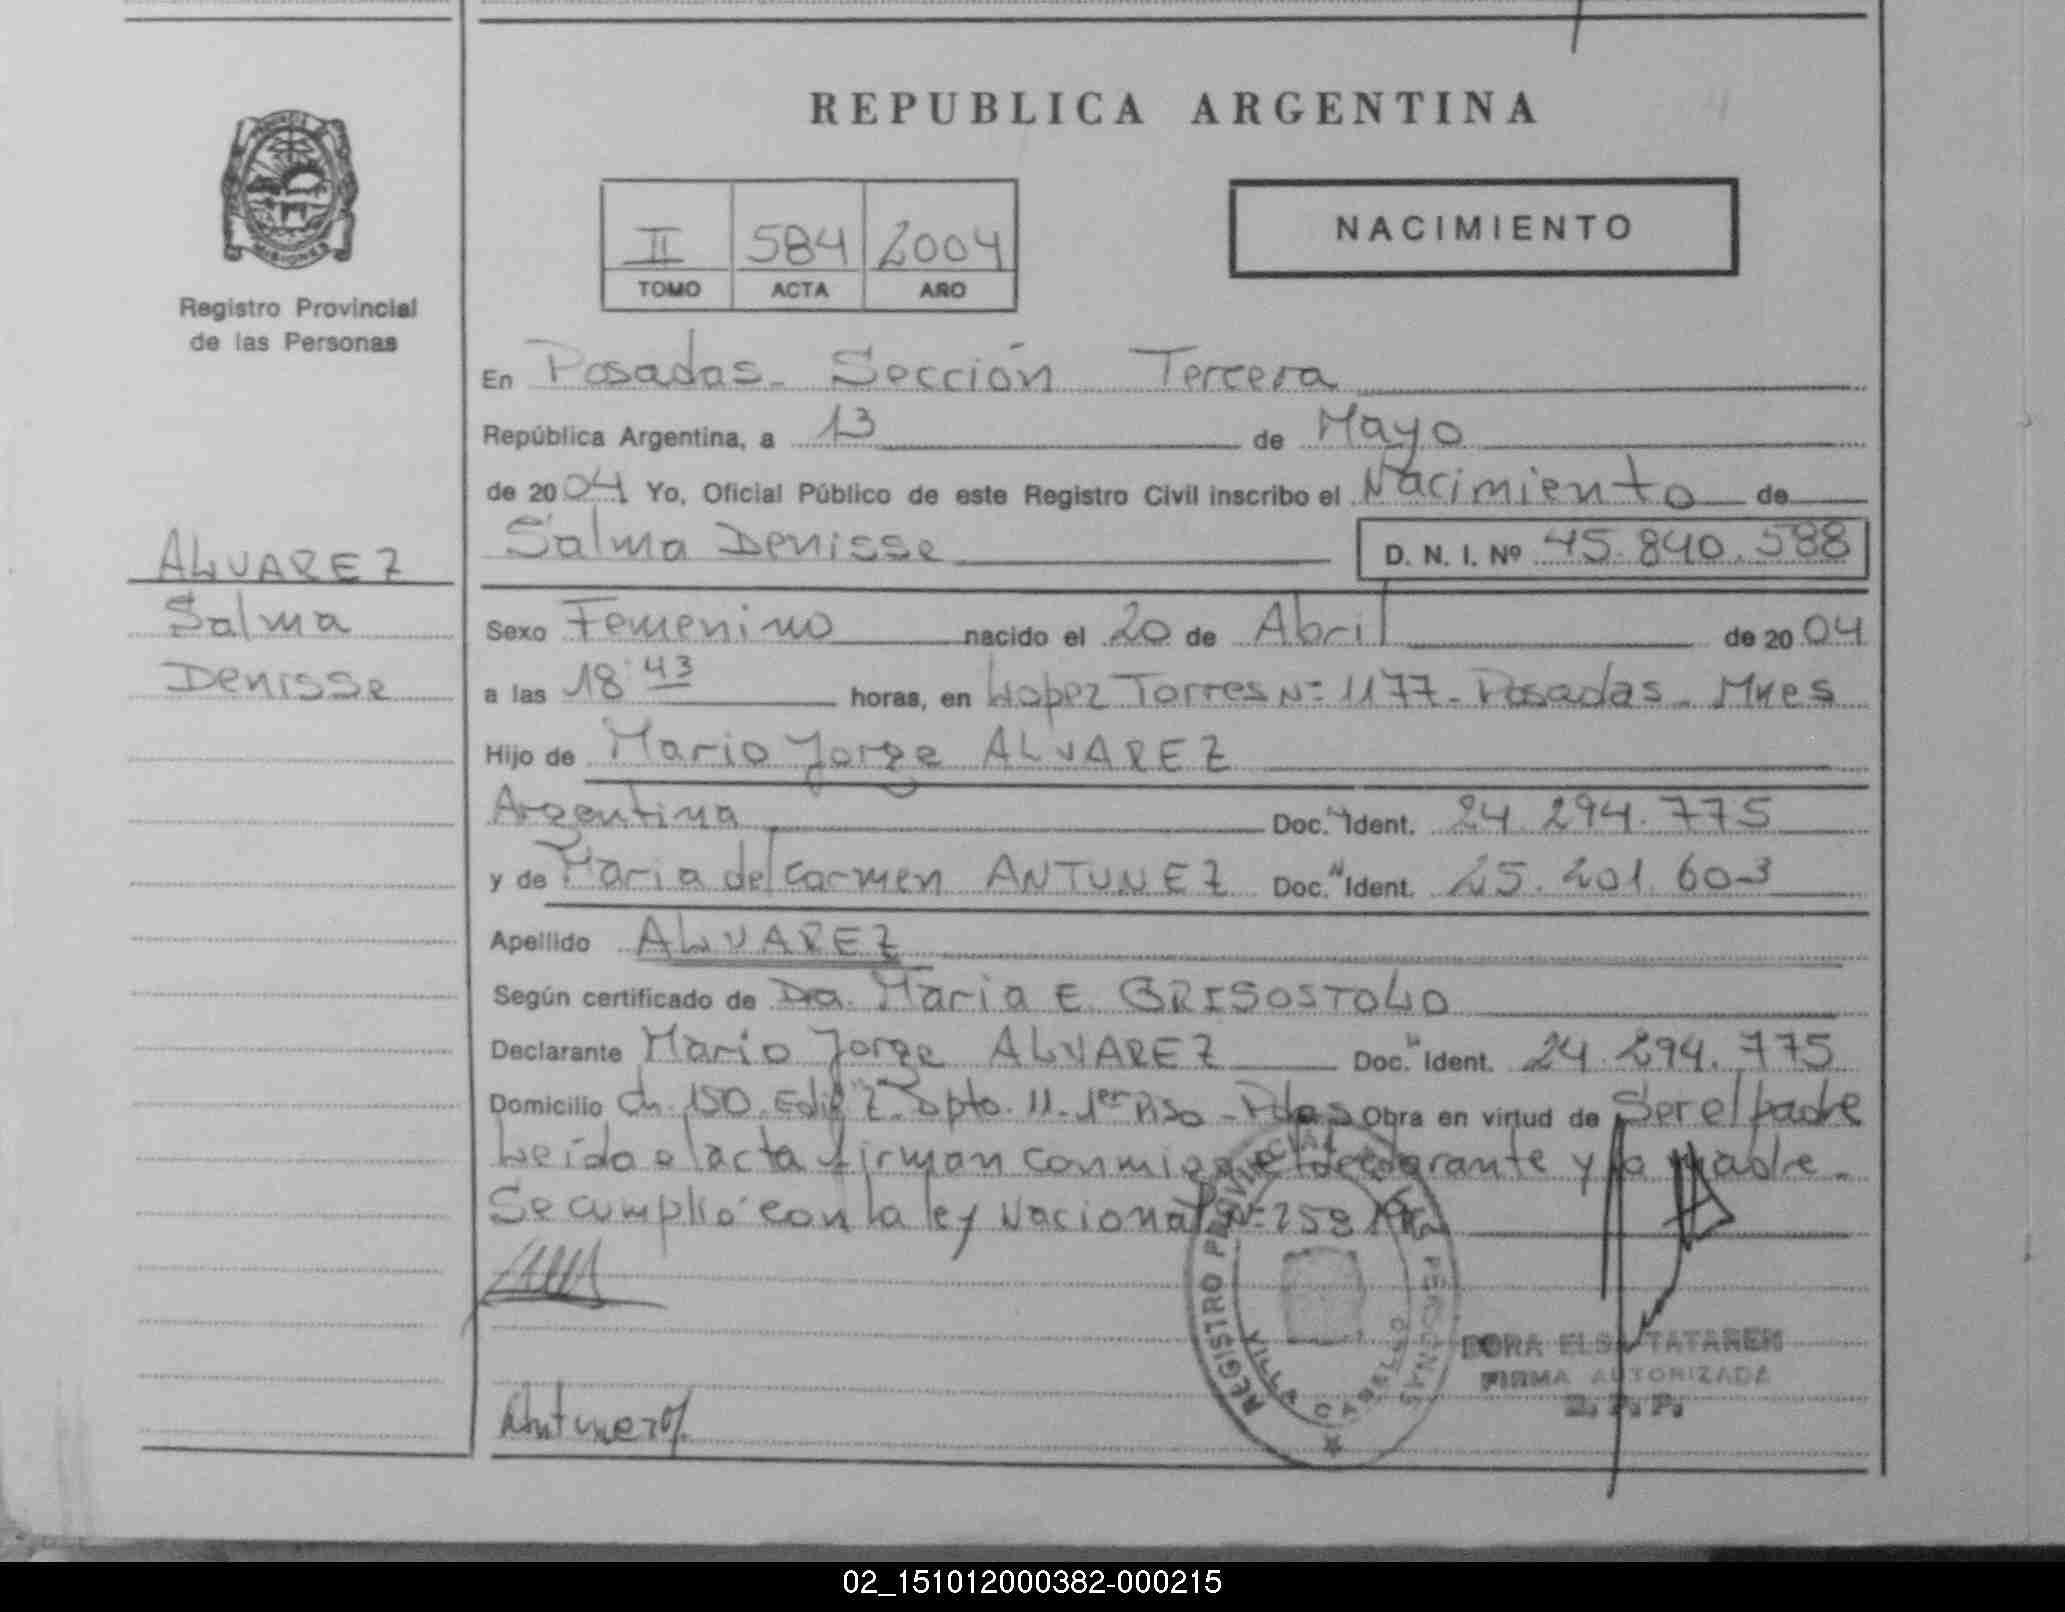 REPUBLICA ARGENTINA
NACIMIENTO
II 584 2004
TOMO ACTA AÑO
Registro Provincial
de las Personas
En Posadas - Sección Tercera
República Argentina, a 13 de Mayo
de 2004 Yo, Oficial Público de este Registro Civil inscribo el Nacimiento de
Salma Denisse D. N. I. Nº 45.840.588
ALVAREZ
Salma
Denisse
Sexo Femenino nacido el 20 de Abril de 2004
a las 18:43 horas, en Lopez Torres Nº 1177 - Posadas - Mnes
Hijo de Mario Jorge ALVAREZ
Argentina Doc. Ident. 24.294.775
y de Maria del Carmen ANTUNEZ Doc. Ident. 25.201.603
Apellido ALVAREZ
Según certificado de Dra. Maria E. GRISOSTOLO
Declarante Mario Jorge ALVAREZ Doc. Ident. 24.294.775
Domicilio Ch. 150 - Edif Z - Dpto. 11 - 1er Piso - Pdas Obra en virtud de Ser el padre
Leído el acta firman conmigo el declarante y la madre.
Se cumplió con la ley Nacional Nº
Antunez
REGISTRO PROVINCIAL DE LAS PERSONAS
VILLA CABELLO
DORA ELSA TATAREN
FIRMA AUTORIZADA
R. P. P.
02_151012000382-000215